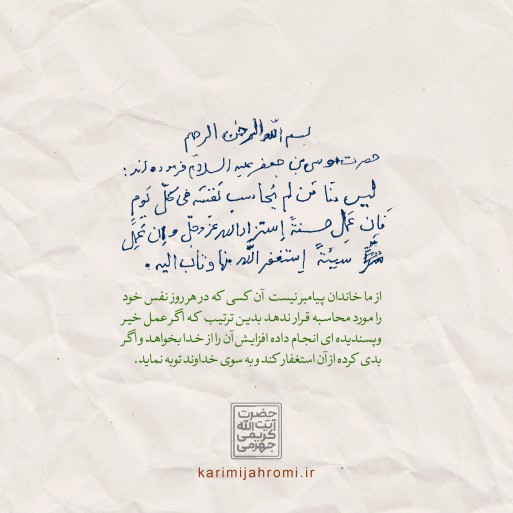 بسم الله الرحمن الرحیم
حضرت موسی بن جعفر علیه السلام فرموده اند:
لیس منّا مَن لم یُحاسِب نَفسَه فی کلّ یَومٍ
فَاِن عَمِلَ حسنةً إستزاد الله عزّوجلّ و اِن عَمِلَ
سیّئةً إستغفر اللّه منها و تاب الیه.
از ما خاندان پیامبر نیست آن کسی که در هر روز نفس خود
را مورد محاسبه قرار ندهد بدین ترتیب که اگر عمل خیر
و پسندیده ای انجام داده افزایش آن را از خدا بخواهد و اگر
بدی کرده از آن استغفار کند و به سوی خداوند توبه نماید.
حضرت
آیت الله
کریمی
جهرمی
karimijahromi.ir